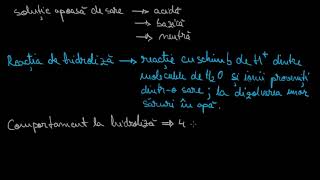 soluție apoasă de sare → acidă
→ bazică
→ neutră
Reacția de hidroliză → reacție cu schimb de H⁺ dintre
moleculele de H₂O și ionii proveniți
dintr-o sare; la dizolvarea unor
săruri în apă.
Comportament la hidroliză ⇒ 4